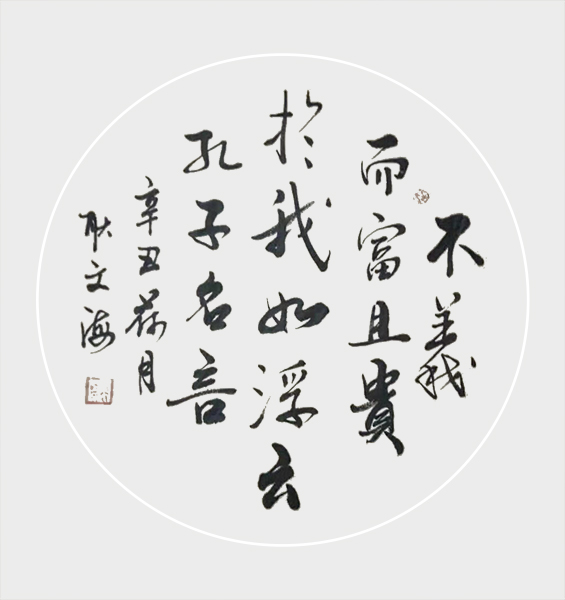 不義
而富且貴
於我如浮云
孔子名言
辛丑荷月
耿文海